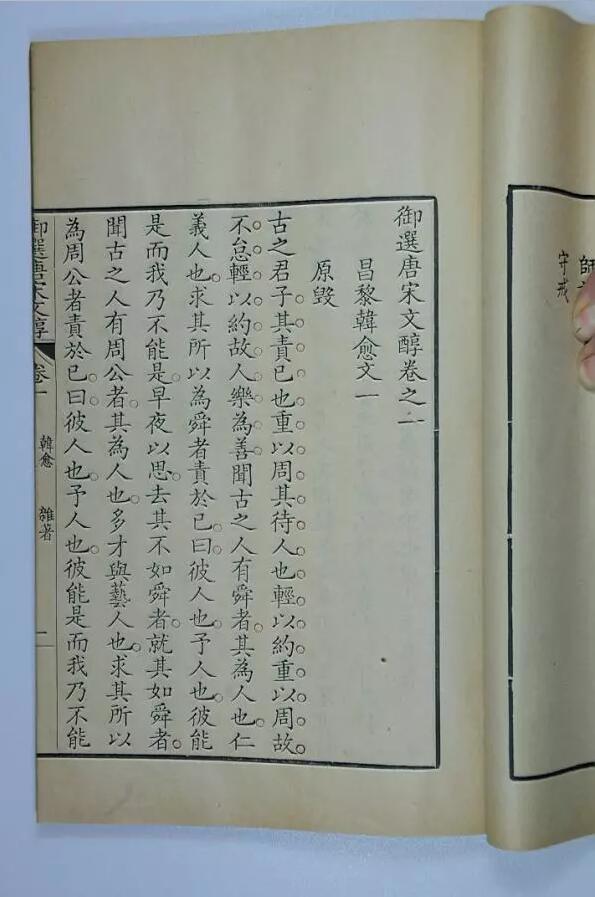 師
守戒
御選唐宋文醇卷之一
昌黎韓愈文一
原毀
古之君子其責已也重以周其待人也輕以約重以周故
不怠輕以約故人樂為善聞古之人有舜者其為人也仁
義人也求其所以為舜者責於已曰彼人也予人也彼能
是而我乃不能是早夜以思去其不如舜者就其如舜者
聞古之人有周公者其為人也多才與藝人也求其所以
為周公者責於已曰彼人也予人也彼能是而我乃不能
御選唐宋文醇 卷一 韓愈 雜著 一